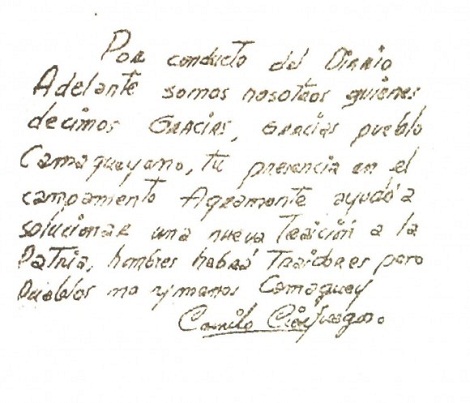 Por conducto del Diario
Adelante somos nosotros quienes
decimos GRACIAS, GRACIAS pueblo
Camagueyano, tu presencia en el
campamento Agramonte ayudó a
solucionar una nueva Traición a la
Patria, hombres habrá Traidores pero
Pueblos no y menos Camaguey
Camilo Cienfuegos.